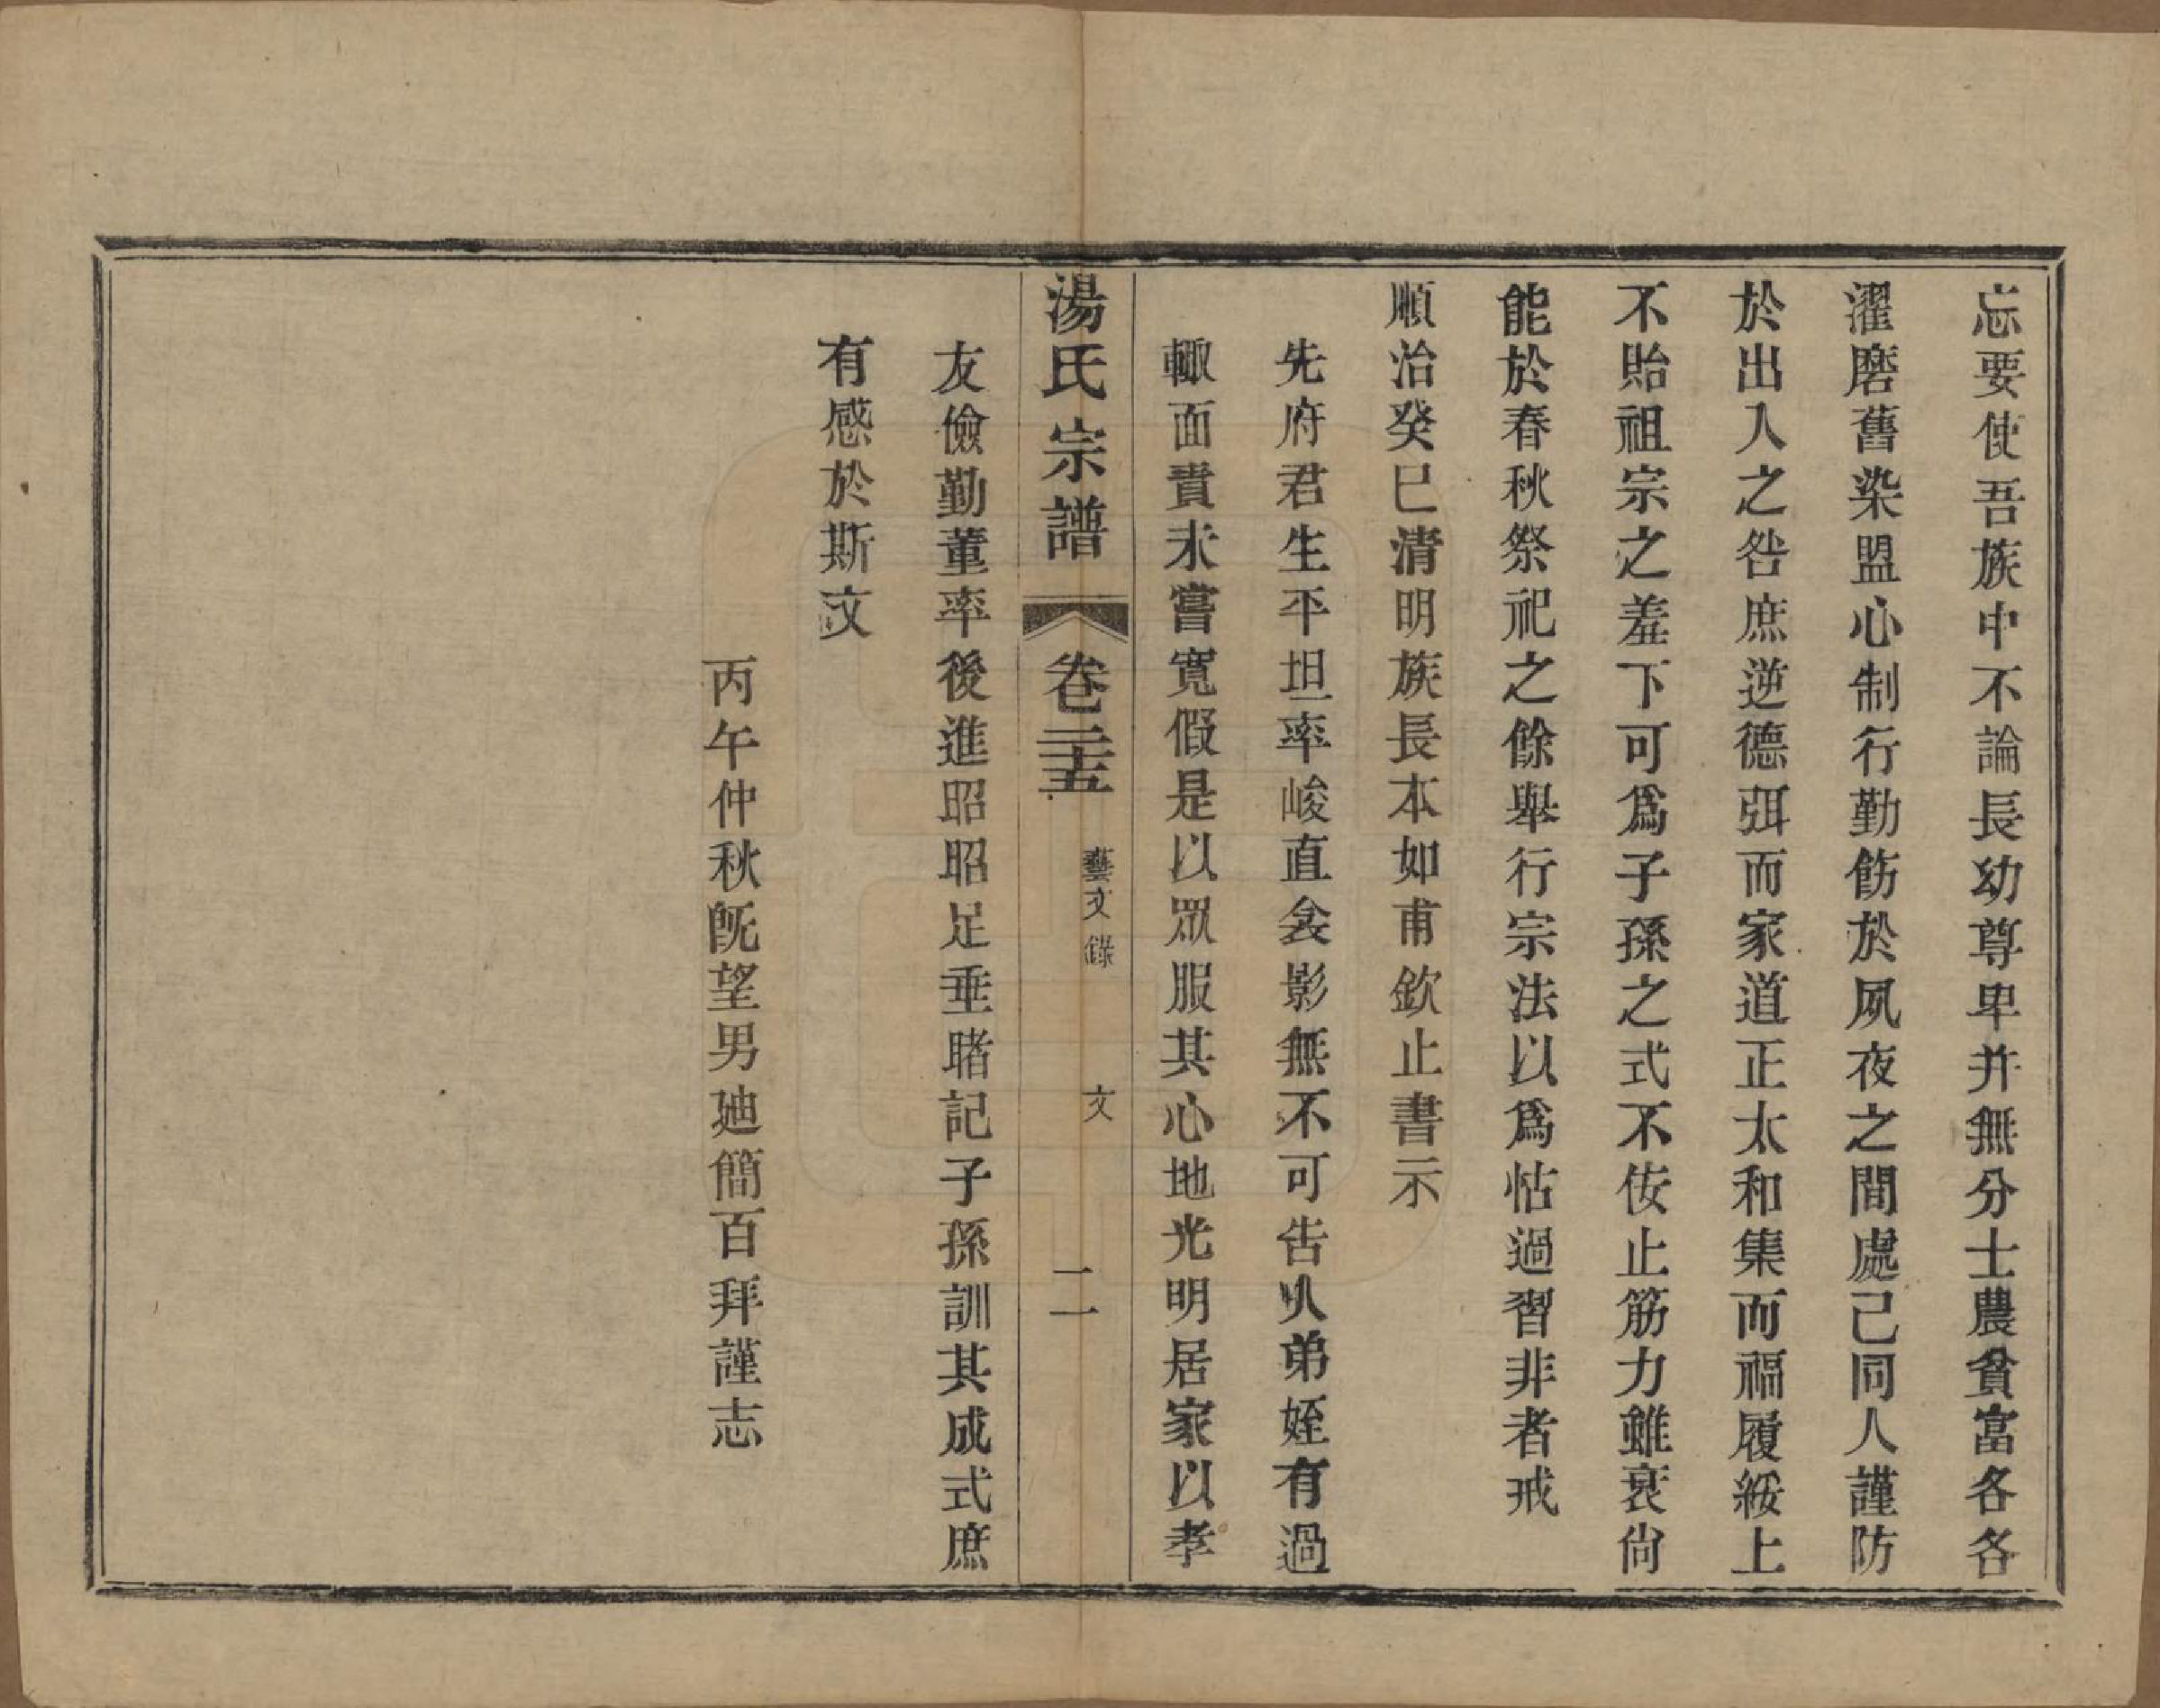 忘要使吾族中不論長幼尊卑并無分士農貧富各各
濯磨舊染盟心制行勤飭於夙夜之間處己同人謹防
於出入之咎庶逆德弭而家道正太和集而福履綏上
不貽祖宗之羞下可爲子孫之式不佞止筋力雖衰尙
能於春秋祭祀之餘舉行宗法以爲怙過習非者戒
順治癸巳清明族長本如甫欽止書示
先府君生平坦率峻直衾影無不可告人弟姪有過
輙面責未嘗寬假是以眾服其心地光明居家以孝
湯氏宗譜 卷二十五 藝文錄 文 二
友儉勤董率後進昭昭足垂睹記子孫訓其成式庶
有感於斯文
丙午仲秋旣望男廸簡百拜謹志